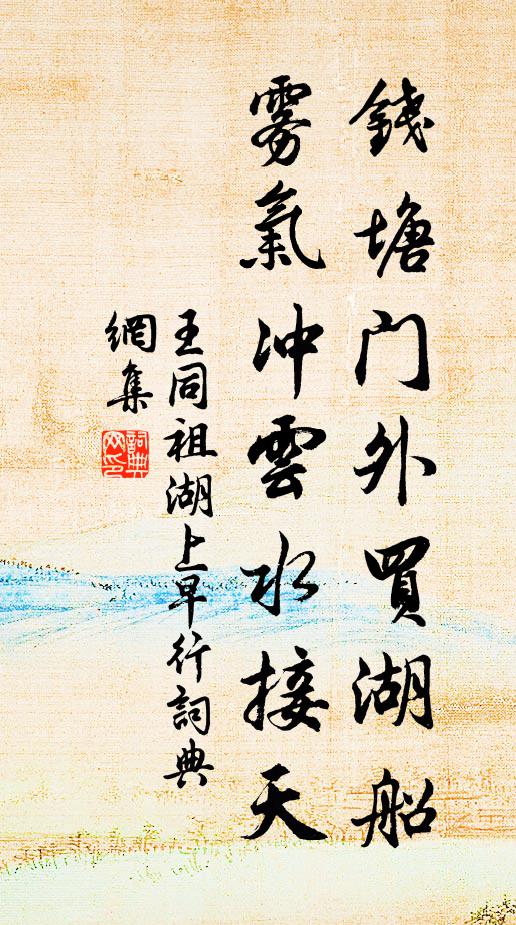 錢塘门外買湖船
雾氣冲雲水接天
王同祖湖上早行詞典
網集
詞典
网印